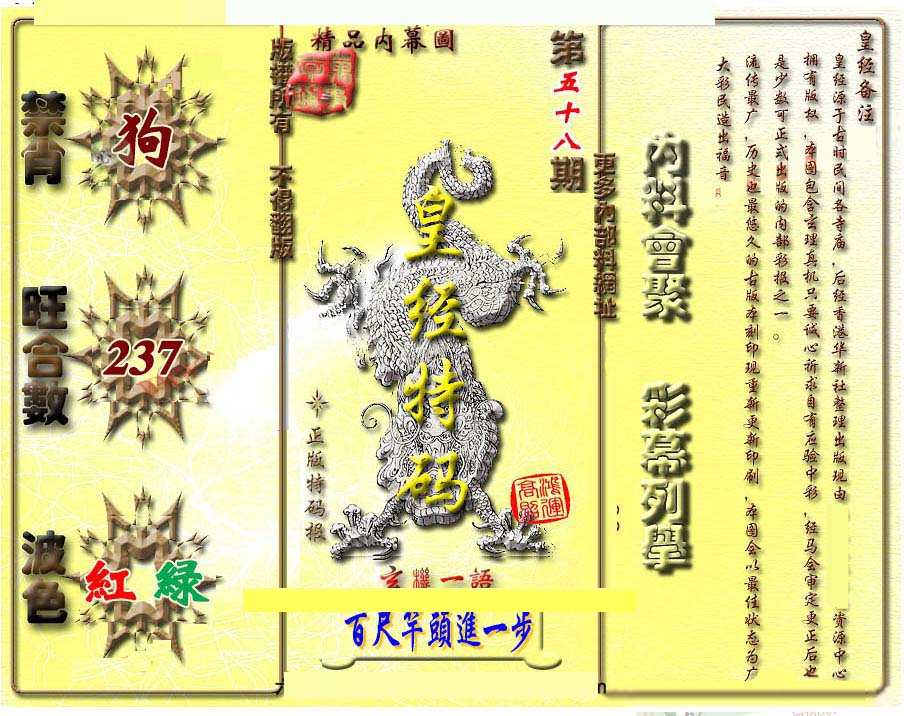 精品内幕圖
版權所有 不得翻版
第五十八期
更多內部料網址
禁肖
狗
旺合數
237
波色
紅 綠
皇经特码
正版特码报
鴻運高照
玄機一語
百尺竿頭進一步
内料會聚
彩幕列舉
皇经备注
皇经源于古时民间各寺庙，后经香港华新社整理出版现由 资源中心
拥有版权，本图包含玄理真机只要诚心祈求自有应验中彩，经马会审定更正后也
是少数可正式出版的内部彩报之一。
流传最广，历史也最悠久的古版本刻印现重新更新印刷，本图会以最佳状态为广
大彩民造出福音